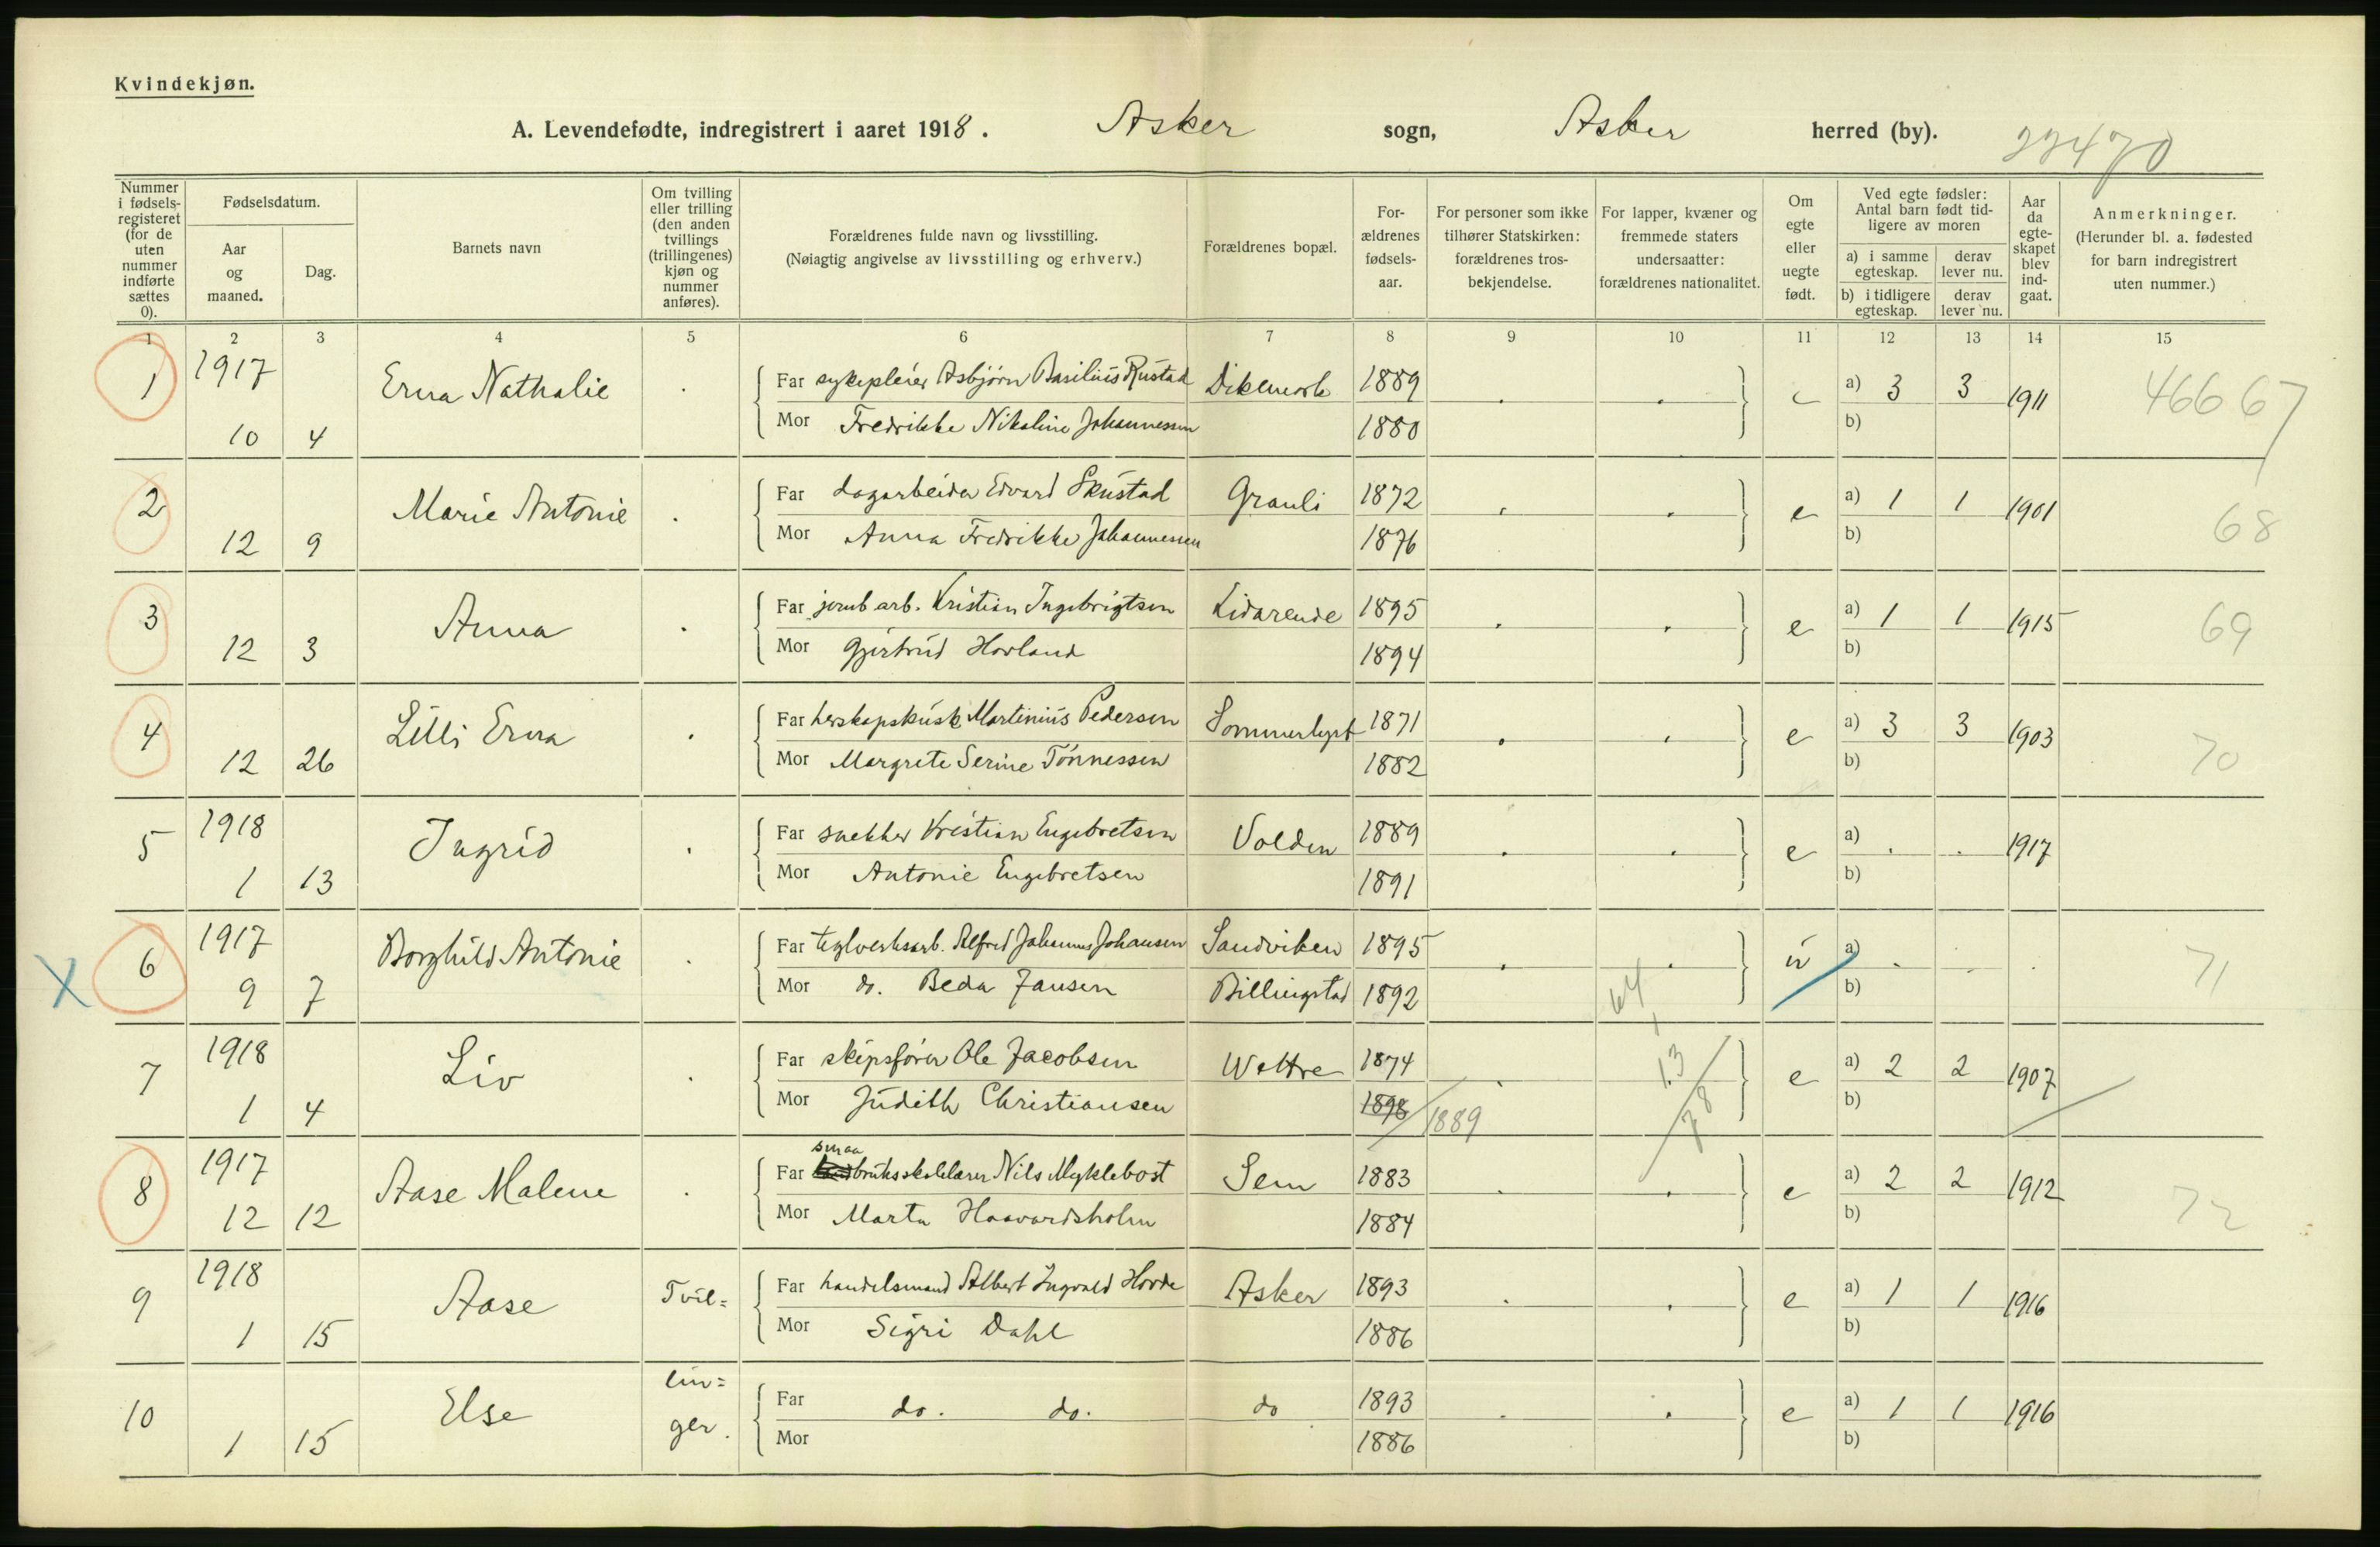 Kvindekjøn.
A. Levendefødte, indregistrert i aaret 1918. Asker sogn, Asker herred (by). 22470
Nummer i fødsels-registeret (for de uten nummer indførte sættes 0).
Fødselsdatum.
Aar og maaned.
Dag.
Barnets navn
Om tvilling eller trilling (den anden tvillings (trillingenes) kjøn og nummer anføres).
Forældrenes fulde navn og livsstilling.
(Nøiagtig angivelse av livsstilling og erhverv.)
Forældrenes bopæl.
For-ældrenes fødsels-aar.
For personer som ikke tilhører Statskirken: forældrenes tros-bekjendelse.
For lapper, kvæner og fremmede staters undersaatter: forældrenes nationalitet.
Om egte eller uegte født.
Ved egte fødsler: Antal barn født tid-ligere av moren
a) i samme egteskap. derav lever nu.
b) i tidligere egteskap. derav lever nu.
Aar da egte-skapet blev ind-gaat.
Anmerkninger.
(Herunder bl. a. fødested for barn indregistrert uten nummer.)
1 2 3 4 5 6 7 8 9 10 11 12 13 14 15
1 1917 Erna Nathalie . Far sykepleier Asbjørn Basilius Rustad Dikemark 1889 . . e a) 3 3 1911 46667
10 4 Mor Fredrikke Nikoline Johannessen 1880 b)
2 Marie Antonie . Far dagarbeider Edvard Skustad Grauli 1872 . . e a) 1 1 1901 68
12 9 Mor Anna Fredrikke Johannessen 1876 b)
3 Anna . Far jernb.arb. Kristian Ingebrigtsen Lidarende 1895 . . e a) 1 1 1915 69
12 3 Mor Gjertrud Hovland 1894 b)
4 Lilli Erna . Far herskapskusk Martinius Pedersen Sommerlyst 1871 . . e a) 3 3 1903 70
12 26 Mor Margrete Serine Tønnessen 1882 b)
5 1918 Ingrid . Far snekker Kristian Engebretsen Volden 1889 . . e a) . . 1917
1 13 Mor Antonie Engebretsen 1891 b)
X 6 1917 Borghild Antonie . Far teglverksarb. Alfred Johannes Johansen Sandviken 1895 . . u a) . . . 71
9 7 Mor do. Beda Jansen Billingstad 1892 64 b)
7 1918 Liv . Far skipsfører Ole Jacobsen Wettre 1874 . 13 e a) 2 2 1907
1 4 Mor Judith Christiansen 1898 1889 78 b)
8 1917 Aase Malene . Far smaabruksskolelærer Nils Myklebost Sem 1883 . . e a) 2 2 1912 72
12 12 Mor Marta Haavardsholm 1884 b)
9 1918 Aase Tvil= Far handelsmand Albert Ingvald Hovde Asker 1893 . . e a) 1 1 1916
1 15 Mor Sigri Dahl 1886 b)
10 Else lin= ger. Far do. do. do 1893 . . e a) 1 1 1916
1 15 Mor 1886 b)